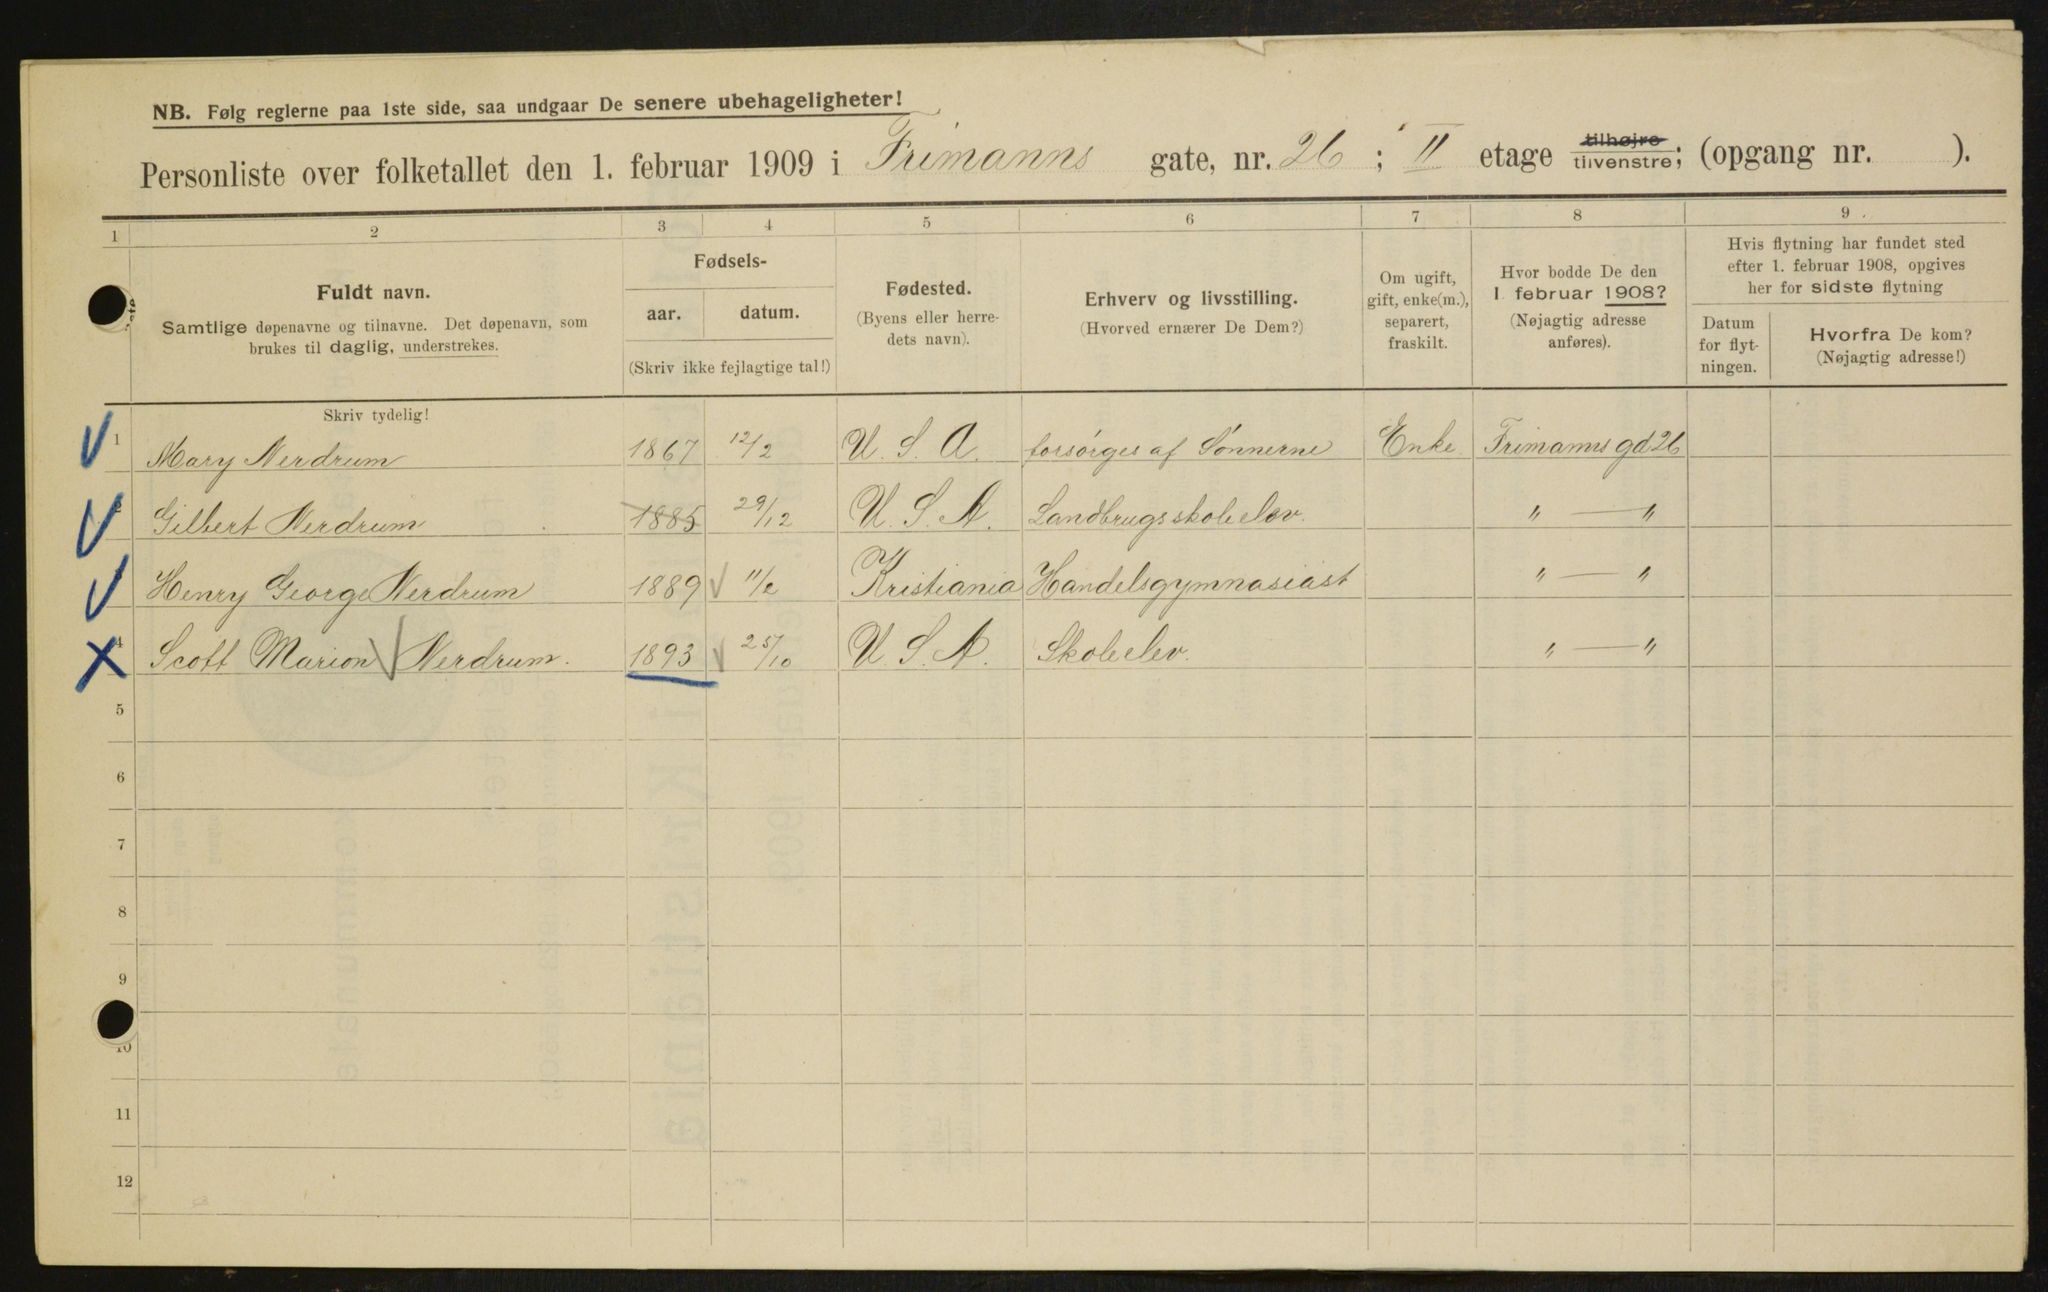 NB. Følg reglerne paa 1ste side, saa undgaar De senere ubehageligheter!
Personliste over folketallet den 1. februar 1909 i Frimanns gate, nr. 26; II etage tilhøjre tilvenstre; (opgang nr. ).
1 2 3 4 5 6 7 8 9
Fuldt navn.
Samtlige døpenavne og tilnavne. Det døpenavn, som
brukes til daglig, understrekes.
Fødsels-
aar. datum.
(Skriv ikke fejlagtige tal!)
Fødested.
(Byens eller herre-
dets navn).
Erhverv og livsstilling.
(Hvorved ernærer De Dem?)
Om ugift,
gift, enke(m.),
separert,
fraskilt.
Hvor bodde De den
1. februar 1908?
(Nøjagtig adresse
anføres).
Hvis flytning har fundet sted
efter 1. februar 1908, opgives
her for sidste flytning
Datum
for flyt-
ningen.
Hvorfra De kom?
(Nøjagtig adresse!)
Skriv tydelig!
1 Mary Nerdrum 1867 12/2 U. S. A. forsørges af Sønnerne Enke Frimanns gd 26
2 Gilbert Nerdrum 1885 29/12 U. S. A. Landbrugsskoleelev. " — "
Henry George Nerdrum 1889 11/2 Kristiania Handelsgymnasiast " — "
4 Scott Marion Nerdrum. 1893 25/10 U. S. A. Skoleelev. " — "
5
6
7
8
9
10
11
12